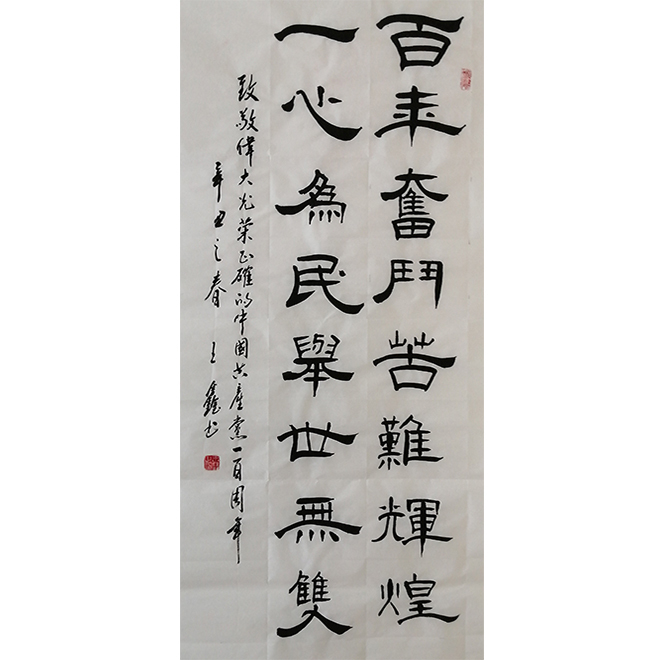 百年奮鬥苦難輝煌
一心為民舉世無雙
致敬偉大光榮正確的中國共產黨一百周年
辛丑之春 王鑫书